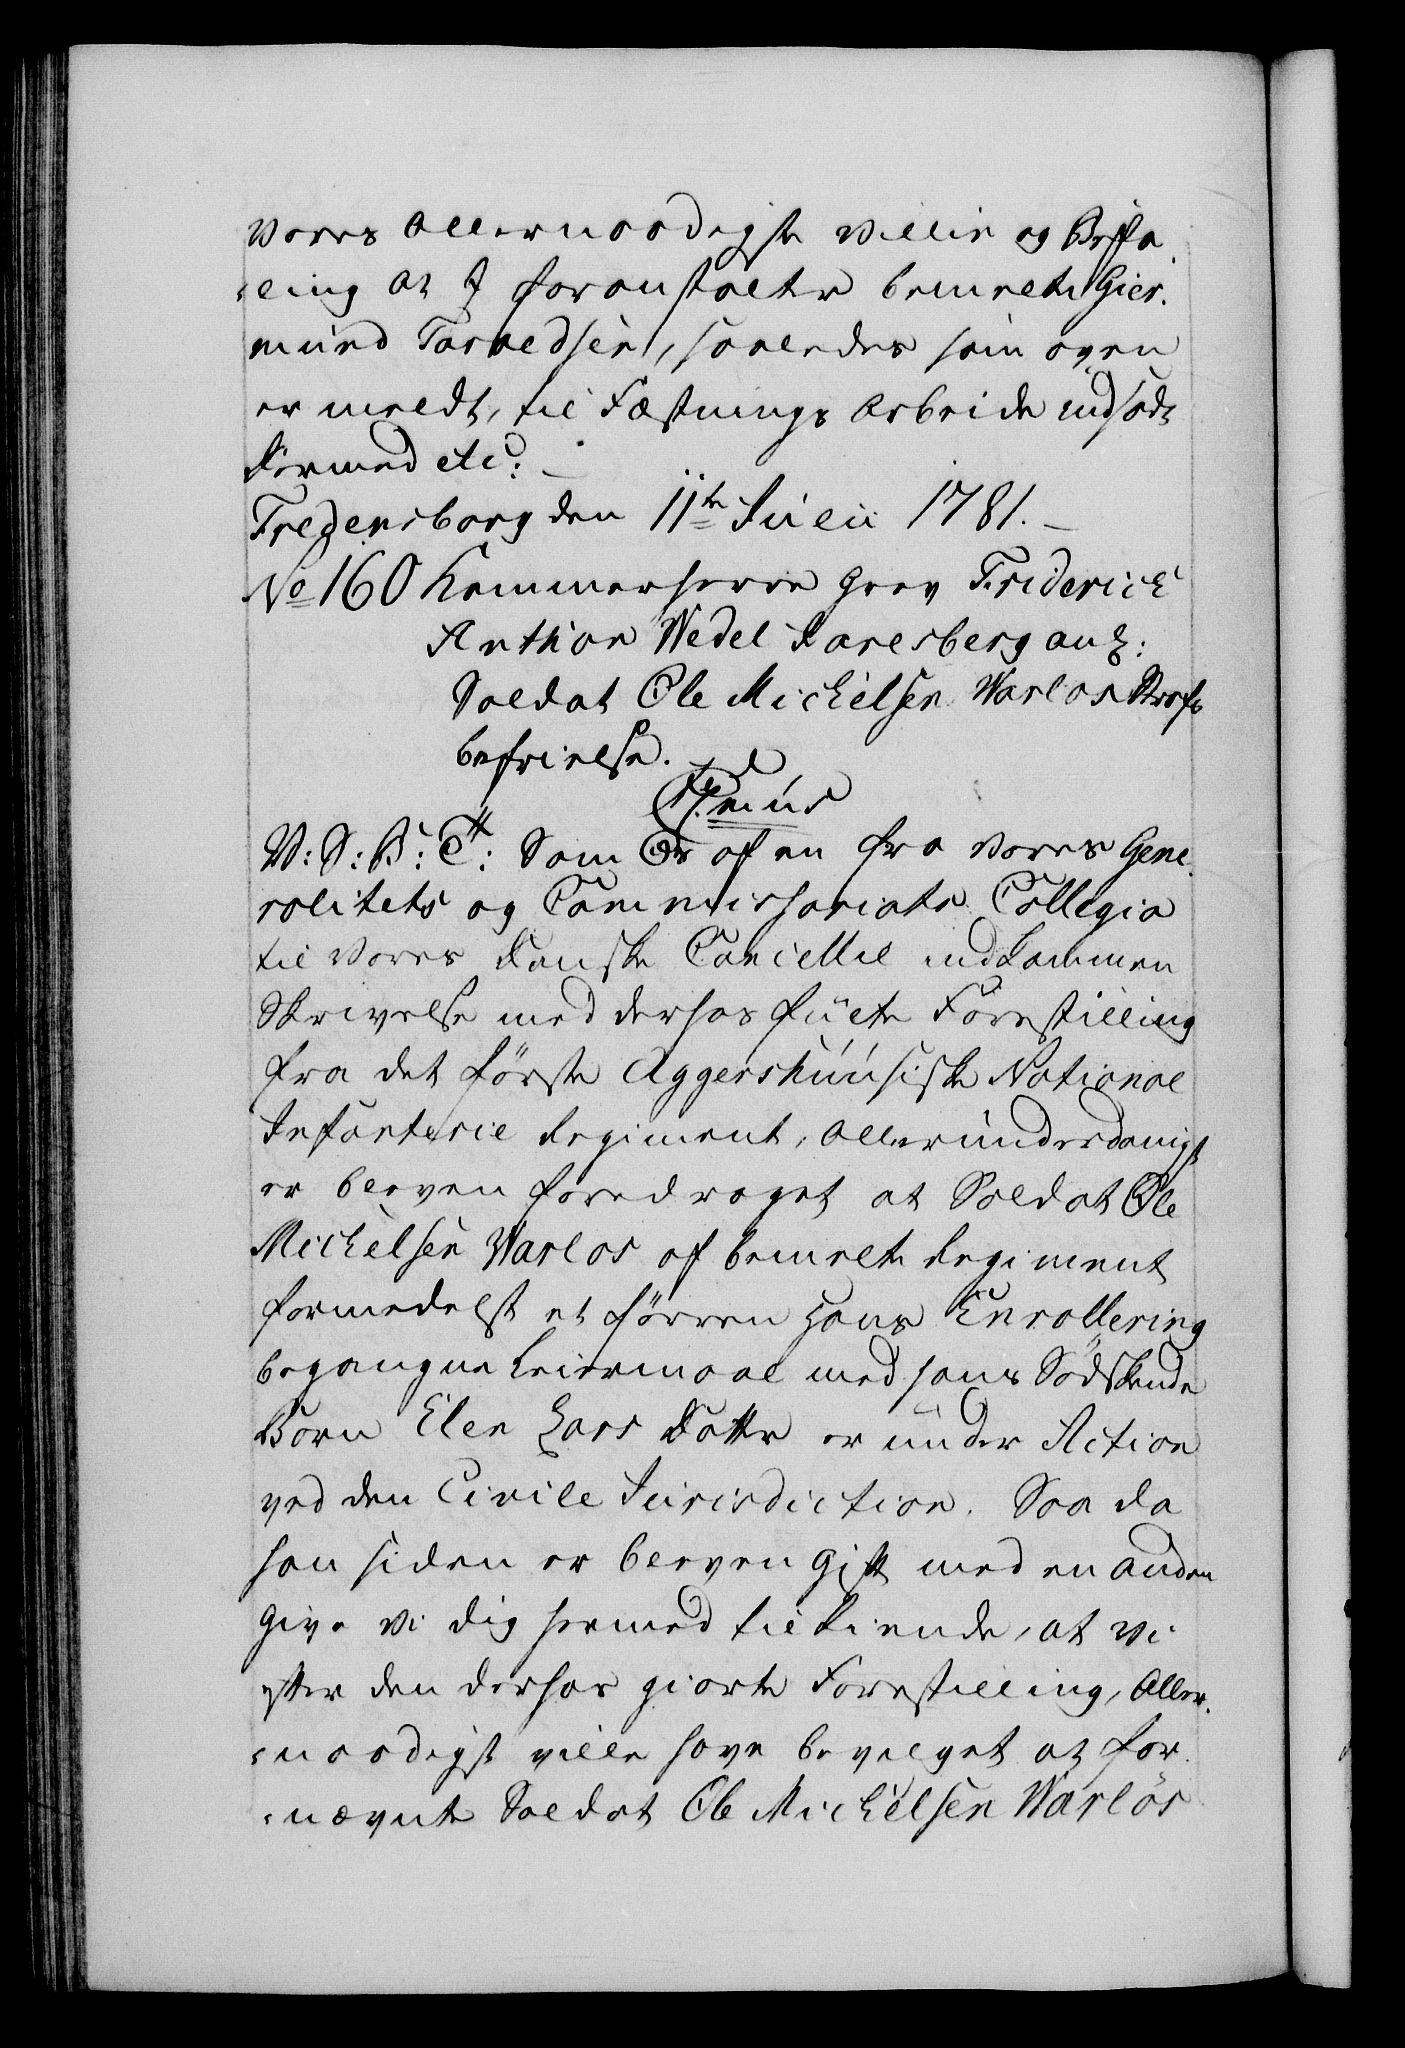 Vores allernaadigste Villie og Befa
ling at I foranstalter bemelte Gier-
mund Taraldsen, saaledes som oven
er meldt, til Fæstnings Arbeide indsadt
Dermed etc:
Fredensborg den 11te Julii 1781.
No 160 Kammerherre Grev Friderich
Anthon Wedel Jarlsberg an:
Soldat Ole Michelsen Warlos Straf
befrielse.
V: S: B: T: Som Os af en fra Vores Gene
ralitets og Commissariats Collegio
til Vores Danske Cancellie indkommen
Skrivelse med derhos fulte Forestilling
fra det første Aggershuusiske National
Infanterie Regiment, allerunderdanigst
er bleven foredraget at Soldat Ole
Michelsen Warlos af bemelte Regiment
formedelst et førren hans Enrollering
begangne Leiermaal med hans Sødskende
Børn Elen Lars Datter er under Action
ved den Civile Jurisdiction. Saa da
han siden er bleven gift med en anden
Give Vi dig hermed tilkiende, at Vi
efter den derhos giorte Forestilling, Aller-
naadigst ville have bevilget at for-
nævnte Soldat Ole Michelsen Warløs